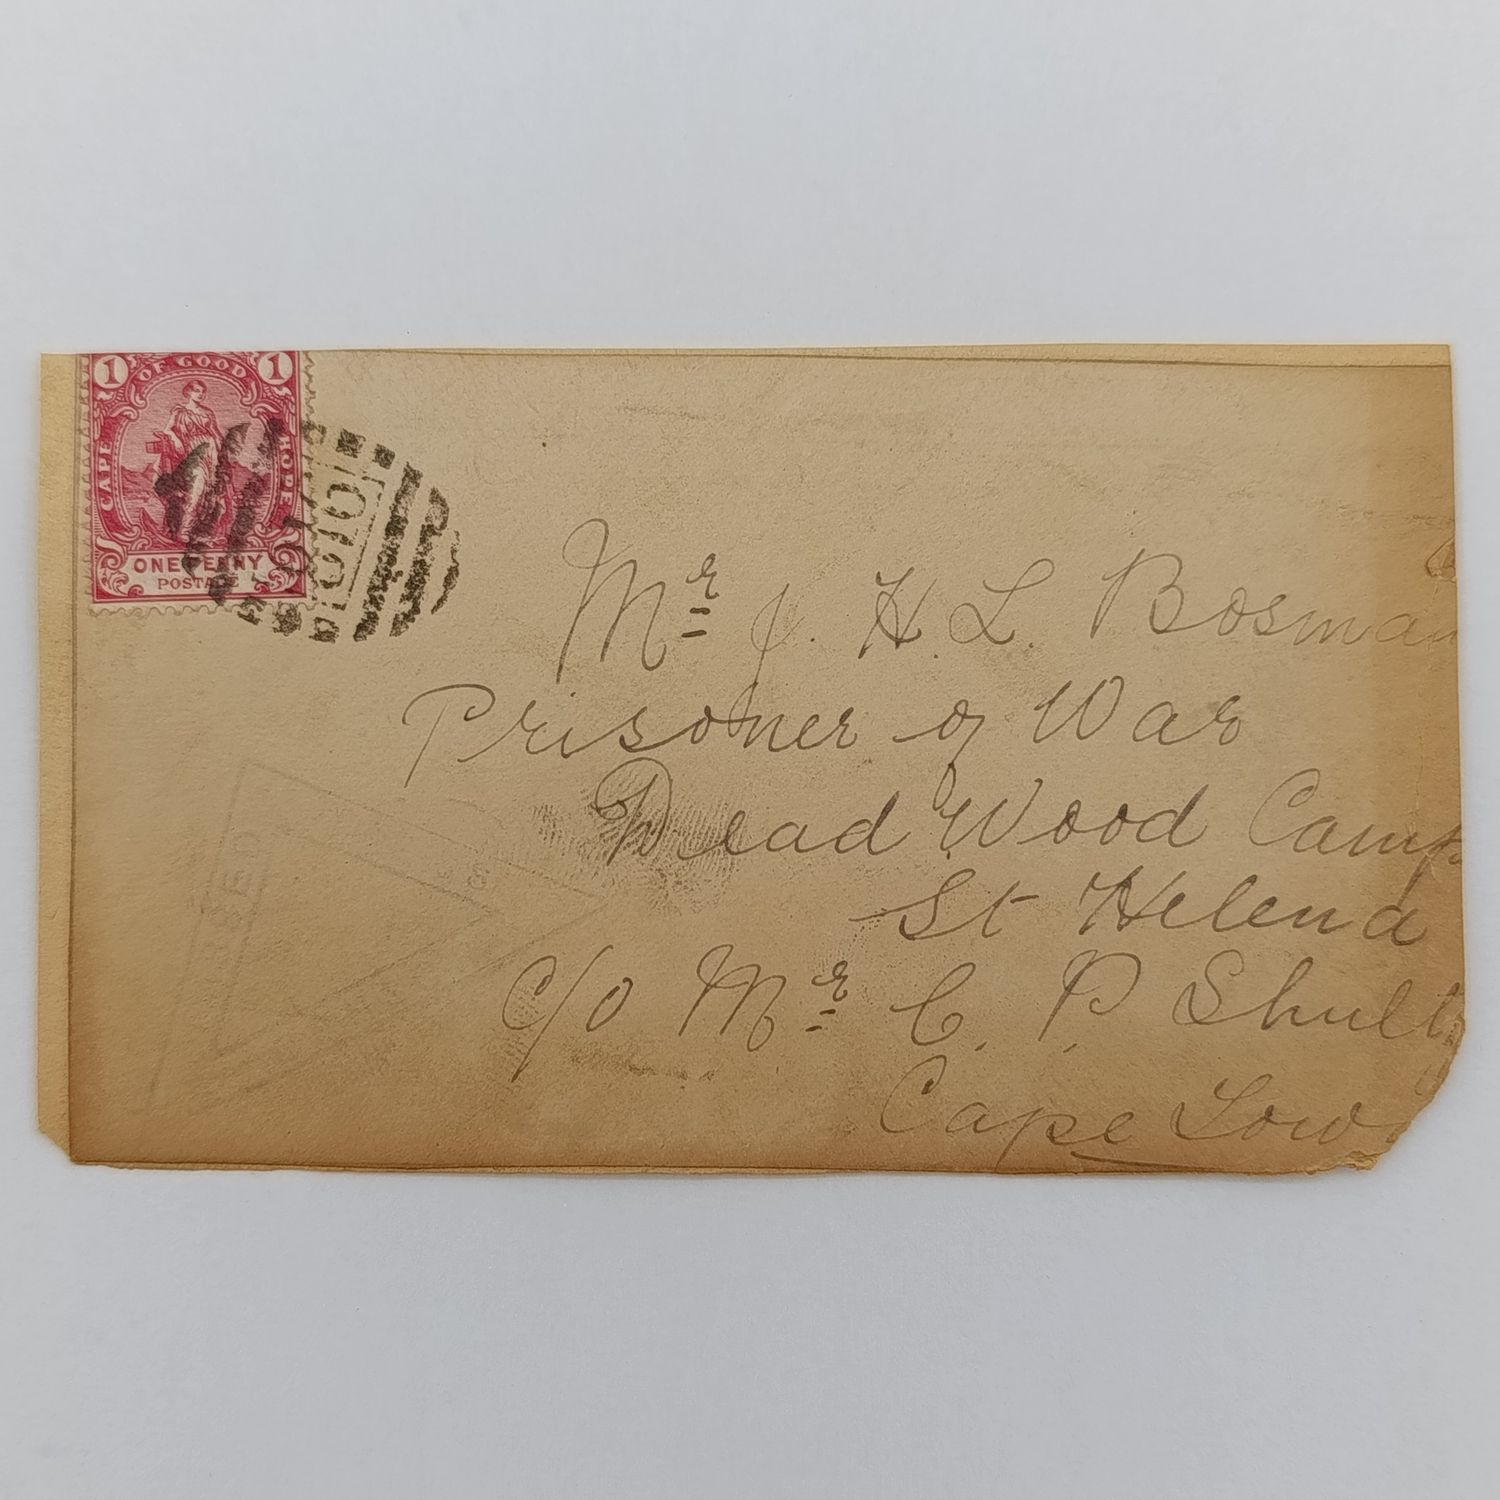 1 OF GOOD 1
CAPE
HOPE
ONE PENNY
POSTAGE
Mr J. H. L. Bosman
Prisoner of War
Dead Wood Camp
St Helena
c/o Mr C. P. Shult
Cape Tow